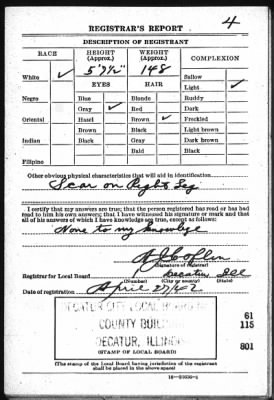 4
REGISTRAR'S REPORT
DESCRIPTION OF REGISTRANT
RACE
HEIGHT (Approx.)
WEIGHT (Approx.)
COMPLEXION
5' 7½"
148
White ✓
Sallow
EYES
HAIR
Light ✓
Negro
Blue
Blonde
Ruddy
Gray ✓
Red
Dark
Oriental
Hazel
Brown ✓
Freckled
Brown
Black
Light brown
Indian
Black
Gray
Dark brown
Bald
Black
Filipino
Other obvious physical characteristics that will aid in identification
Scar on Right Leg
I certify that my answers are true; that the person registered has read or has had
read to him his own answers; that I have witnessed his signature or mark and that
all of his answers of which I have knowledge are true, except as follows:
None to my knowledge
(Signature of registrar)
Registrar for Local Board 1 Decatur Ill
(Number) (City or county) (State)
Date of registration April 27/42
COUNTY BUILDING
DECATUR, ILLINOIS
(STAMP OF LOCAL BOARD)
61
115
801
(The stamp of the Local Board having jurisdiction of the registrant
shall be placed in the above space)